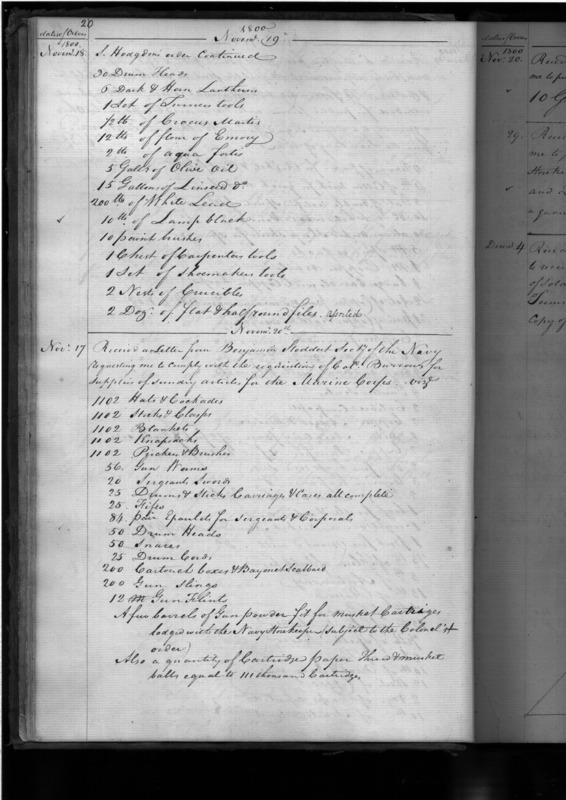 20
dates of Orders
1800
Novem. 19th
1800
Novem. 18.
S. Hodgdon's order Continued
30 Drum Heads
6 Dark & Horn Lanthorn
1 Set of Turners tools
lb of Crocus Martis
12 lb of flour of Emory
2 lb of aqua fortis
5 Galls of Olive Oil
15 Gallons of Linseed do
200 lb of White Lead
10 lb of Lamp black
10 paint brushes
1 Chest of Carpenters tools
1 Set of Shoemakers tools
2 Nests of Crucibles
2 Doz. of flat & half round files. assorted
Novem. 20th
Nov. 17
Received a Letter from Benjamin Stoddert Secy. of the Navy
requesting me to comply with the requisitions of Col. Burrows for
Supplies of Sundry articles for the Marine Corps. viz
1102 Hats & Cockades
1102 Stocks & Clasps
1102 Blankets
1102 Knapsacks
1102 Pickers & Brushes
56. Gun Worms
20 Sergeants Swords
25 Drums & Sticks Carriages & Cases all complete
25 Fifes
84 pair Epaulets for Sergeants & Corporals
50 Drum Heads
50 Snares
25 Drum Cords
200 Cartouch boxes & Bayonet Scabbard
200 Gun Slings
12 M Gun Flints
A few barrels of Gun powder fit for musket Cartriages
lodged with the Navy Storekeeper subject to the Colonel's
order)
Also a quantity of Cartridge paper Thread & musket
balls equal to thousand Cartridges
dates of Orders
1800
Nov. 20.
me to
10
29.
me to
and
Decem. 4
to
of
Copy of